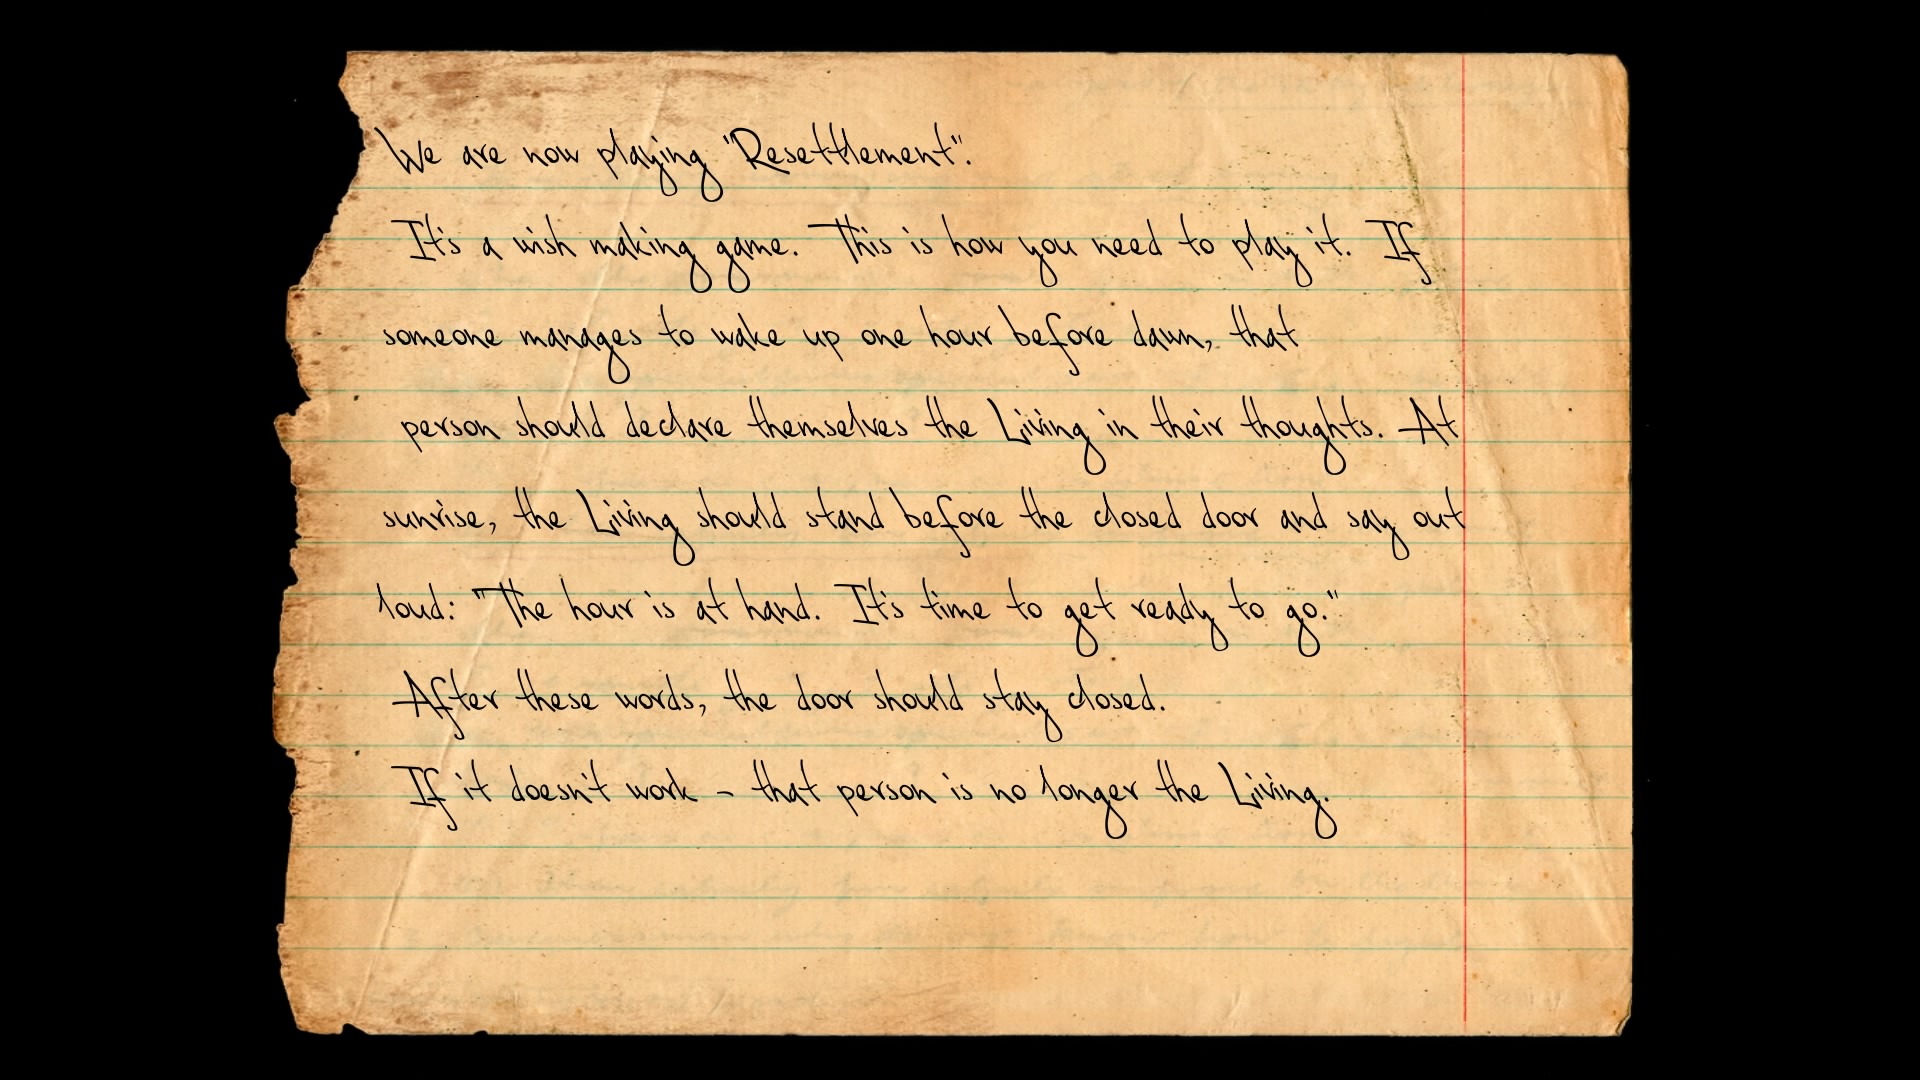 We are now playing "Resettlement".
It's a wish making game. This is how you need to play it. If
someone manages to wake up one hour before dawn, that
person should declare themselves the Living in their thoughts. At
sunrise, the Living should stand before the closed door and say out
loud: "The hour is at hand. It's time to get ready to go."
After these words, the door should stay closed.
If it doesn't work - that person is no longer the Living.